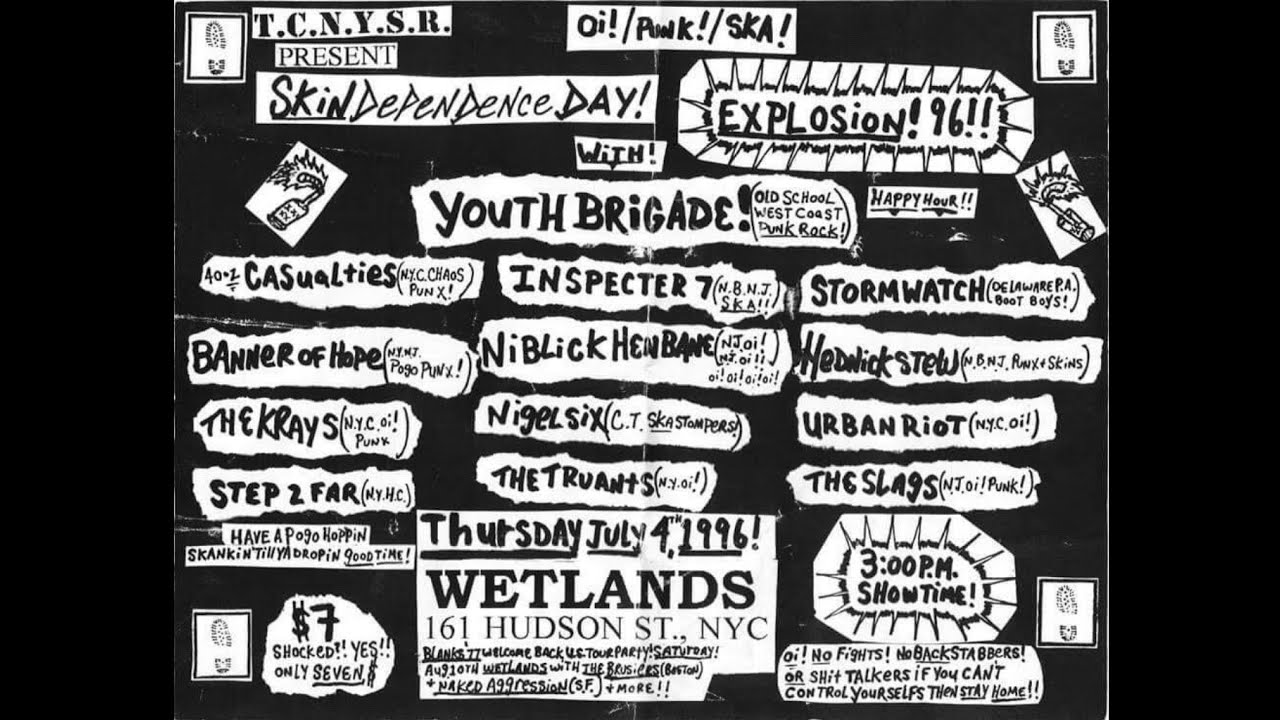 T.C.N.Y.S.R.
PRESENT
SKiNDePeNDeNce DAY!
Oi!/PUNK!/SKA!
EXPLOSION! 96!!
WiTH!
YOUTH BRiGADE! (OLD SCHOOL
WEST COAST
PUNK ROCK!)
HAPPY HOUR!!
40·z CASualTies (N.Y.C. CHAOS
PUNX!)
INSPECTER 7 (N.B.N.J.
SKA!!)
STORMWATCH (DELAWARE P.A.
BOOT BOYS!)
BANNER OF HOPE (N.Y.N.J.
POGO PUNX!)
NiBLICK HENBANE (N.J. oi!
N.J. oi!!
oi! oi! oi! oi!)
HEDNICK STEW (N.B.N.J. PUNX + SKiNS)
THE KRAYS (N.Y.C. oi!
PUNX)
NigelSix (C.T. SKA STOMPERS!)
URBAN RiOT (N.Y.C. Oi!)
STEP 2 FAR (N.Y.H.C.)
THE TRUANtS (N.Y. oi!)
THE SLAGS (N.J. oi! PUNK!)
HAVE A POGO HOPPIN
SKANKIN TILL YA DROP IN good TIME!
Thursday July 4TH, 1996!
WETLANDS
161 HUDSON ST., NYC
BLANKS '77 WELCOME BACK U.S. TOUR PARTY! SATURDAY!
AUG 10TH WETLANDS WITH THE BRUSIERS (BOSTON)
+ NAKED AGGRESSION (S.F.) + MORE!!
3:00 P.M.
SHOWTIME!
$7
SHOCKED?! YES!!
ONLY SEVEN $
Oi! NO FIGHTS! NO BACKSTABBERS!
OR SHIT TALKERS iF YOU CAN'T
CONTROL YOURSELFS THEN STAY HOME!!